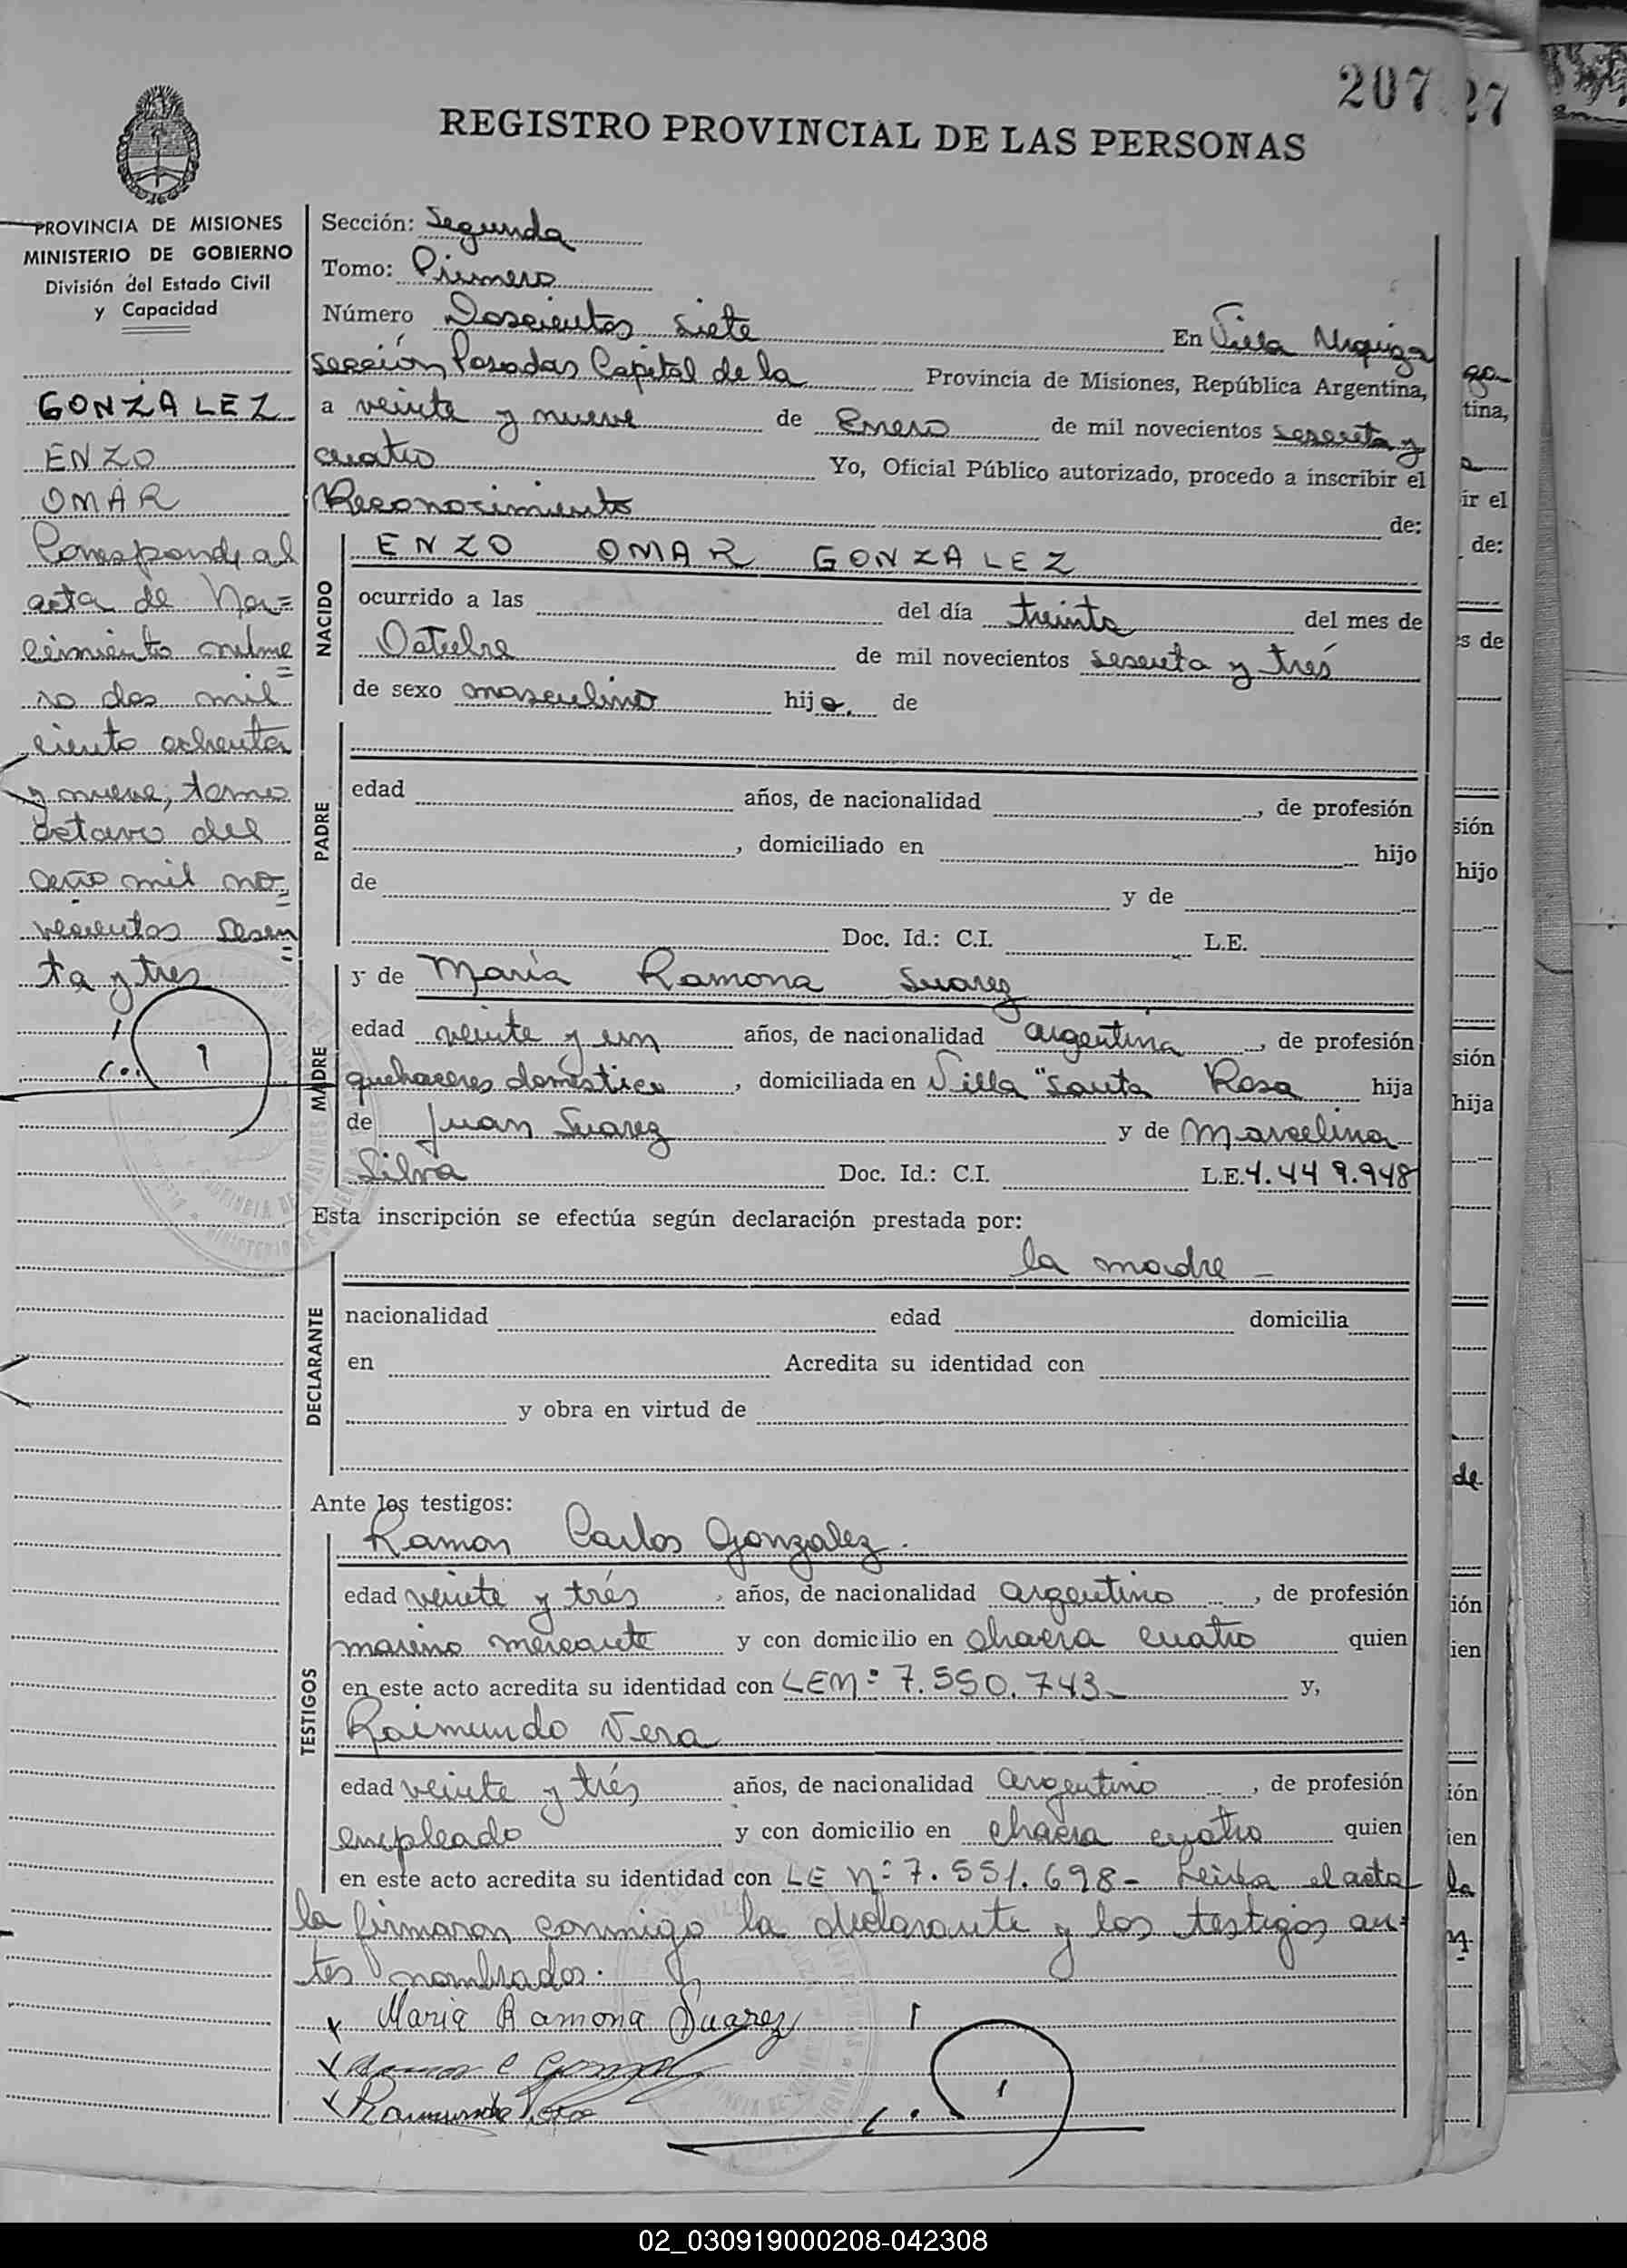 207
27
REGISTRO PROVINCIAL DE LAS PERSONAS
PROVINCIA DE MISIONES
MINISTERIO DE GOBIERNO
División del Estado Civil
y Capacidad
GONZALEZ
ENZO
OMAR
Corresponde al
acta de Na=
cimiento núme=
ro dos mil
ciento ochenta
y nueve, tomo
octavo del
año mil no=
vecientos sesen=
ta y tres
Sección: Segunda
Tomo: Primero
Número Doscientos siete En Villa Urquiza
sección Posadas Capital de la Provincia de Misiones, República Argentina,
a veinte y nueve de Enero de mil novecientos sesenta y
cuatro Yo, Oficial Público autorizado, procedo a inscribir el
Reconocimiento de:
NACIDO
ENZO OMAR GONZALEZ
ocurrido a las del día treinta del mes de
Octubre de mil novecientos sesenta y trés
de sexo masculino hijo. de
PADRE
edad años, de nacionalidad , de profesión
, domiciliado en hijo
de y de
Doc. Id.: C.I. L.E.
MADRE
y de María Ramona Suarez
edad veinte y un años, de nacionalidad argentina , de profesión
quehaceres domestico , domiciliada en Villa "Santa Rosa hija
de Juan Suarez y de Marcelina
Silva Doc. Id.: C.I. L.E. 4.449.948
Esta inscripción se efectúa según declaración prestada por:
la madre -
DECLARANTE
nacionalidad edad domicilia
en Acredita su identidad con
y obra en virtud de
Ante los testigos:
TESTIGOS
Ramon Carlos Gonzalez.
edad veinte y trés , años, de nacionalidad argentino , de profesión
marino mercante y con domicilio en chacra cuatro quien
en este acto acredita su identidad con LEN: 7.550.743- y,
Raimundo Vera
edad veinte y trés años, de nacionalidad argentino , de profesión
empleado y con domicilio en chacra cuatro quien
en este acto acredita su identidad con LE N: 7.551.698- Leida el acta
la firmaron conmigo la declarante y los testigos an=
tes nombrados.
x Maria Ramona Suarez
x Ramon C Gonzalez
x Raimundo Vera
02_030919000208-042308